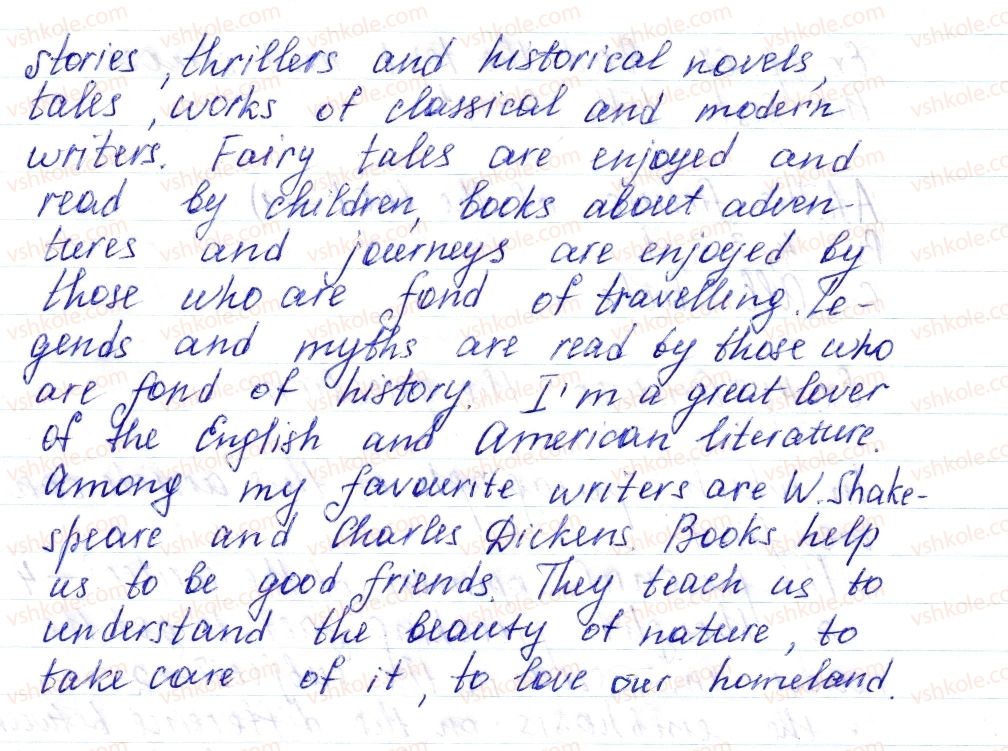 stories, thrillers and historical novels,
tales, works of classical and modern
writers. Fairy tales are enjoyed and
read by children, books about adven-
tures and journeys are enjoyed by
those who are fond of travelling. Le-
gends and myths are read by those who
are fond of history. I'm a great lover
of the English and American literature.
Among my favourite writers are W. Shake-
speare and Charles Dickens. Books help
us to be good friends. They teach us to
understand the beauty of nature, to
take care of it, to love our homeland.